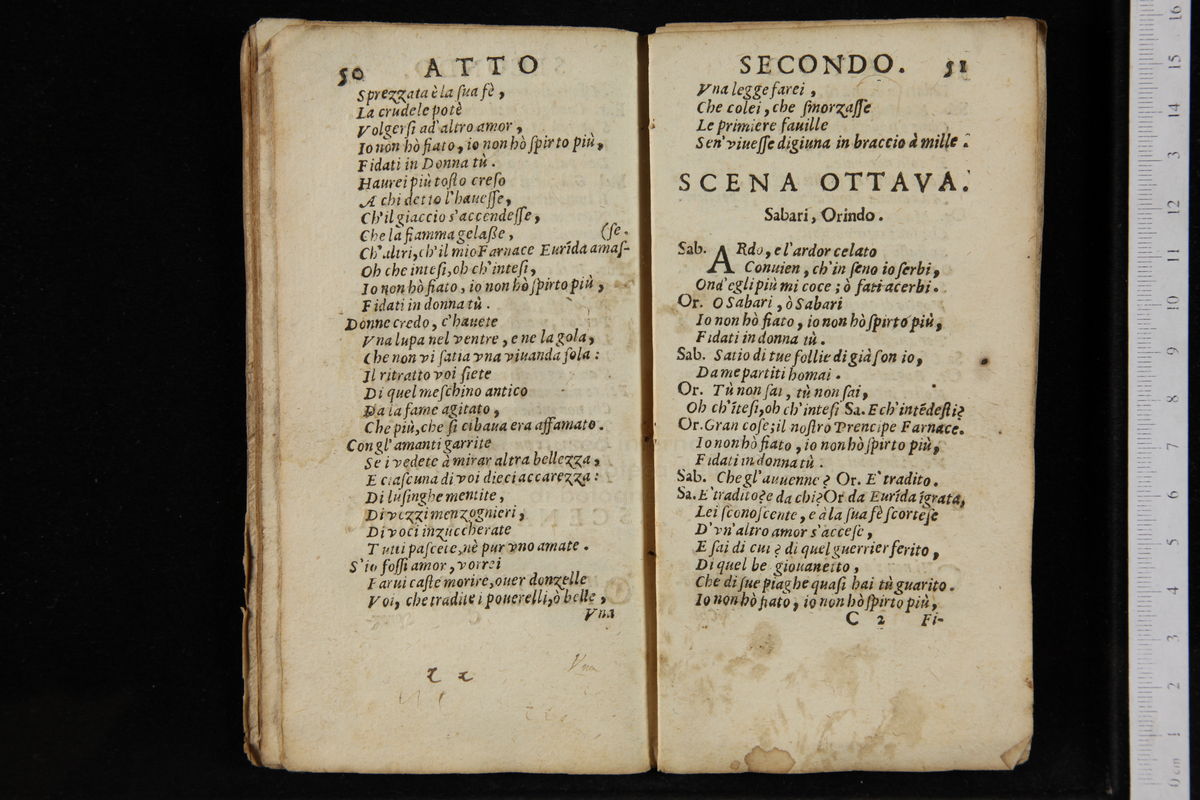 50 ATTO
Sprezzata è la sua fè,
La crudele potè
Volgersi ad'altro amor,
Io non hò fiato, io non hò spirto più,
Fidati in Donna tù.
Haurei più tosto creso
A chi detto l'hauesse,
Ch'il giaccio s'accendesse,
Che la fiamma gelaße, (se.
Ch'altri, ch'il mio Farnace Eurĩda amas-
Oh che intesi, oh ch'intesi,
Io non hò fiato, io non hò spirto più,
Fidati in donna tù.
Donne credo, c'hauete
Vna lupa nel ventre, e ne la gola,
Che non vi satia vna viuanda sola:
Il ritratto voi siete
Di quel meschino antico
Da la fame agitato,
Che più, che si cibaua era affamato.
Con gl'amanti garrite
Se i vedete à mirar altra bellezza,
E ciascuna di voi dieci accarezza:
Di lusinghe mentite,
Di vezzi menzognieri,
Di voci inzuccherate
Tutti pasceie, nè pur vno amate.
S'io fossi amor, vorrei
Farui caste morire, ouer donzelle
Voi, che tradite i pouerelli, ò belle,
Vna
Vna
SECONDO. 51
Vna legge farei,
Che colei, che smorzasse
Le primiere fauille
Sen' viuesse digiuna in braccio à mille.
SCENA OTTAVA.
Sabari, Orindo.
Sab. ARdo, e l'ardor celato
Conuien, ch'in seno io serbi,
Ond'egli più mi coce; ò fati acerbi.
Or. O Sabari, ò Sabari
Io non hò fiato, io non hò spirto più,
Fidati in donna tù.
Sab. Satio di tue follie di già son io,
Da me partiti homai.
Or. Tù non sai, tù non sai,
Oh ch'ĩtesi, oh ch'intesi Sa. E ch'intẽdesti?
Or. Gran cose; il nostro Prencipe Farnace.
Io non hò fiato, io non hò spirto più,
Fidati in donna tù.
Sab. Che gl'auuenne? Or. E' tradito.
Sa. E' tradito? e da chi? Or da Eurĩda ĩgrata,
Lei sconoscente, e à la sua fè scortese
D'vn'altro amor s'accese,
E sai di cui? di quel guerrier ferito,
Di quel be giouanetto,
Che di sue piaghe quasi hai tù guarito.
Io non hò fiato, io non hò spirto più,
C 2 Fi-